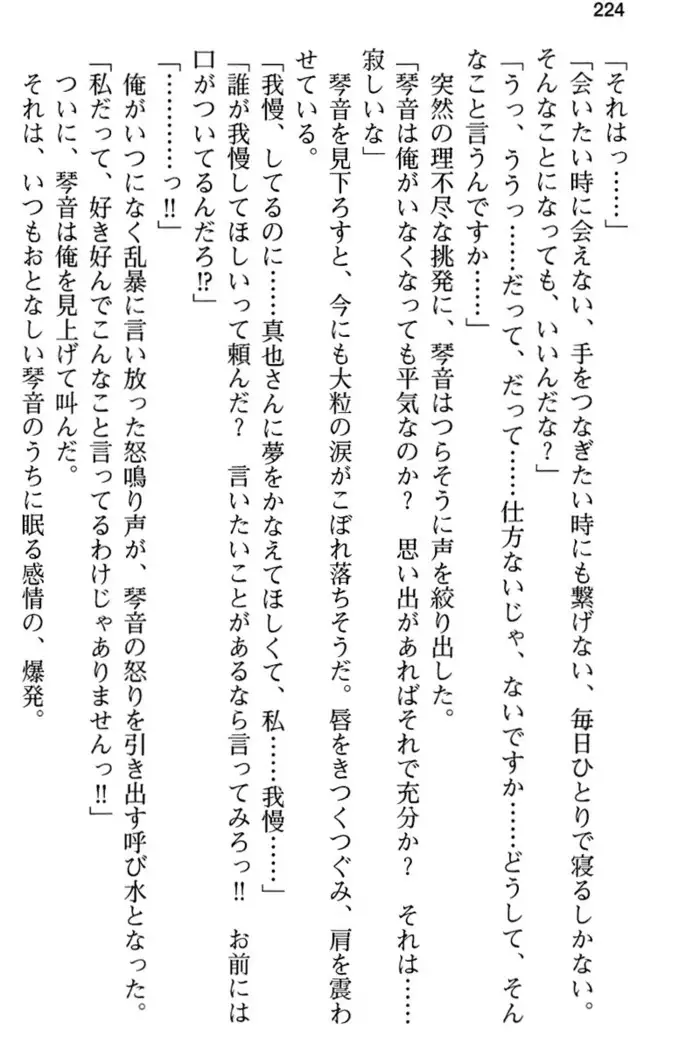 224
「それはっ……」
「会いたい時に会えない、手をつなぎたい時にも繋げない、毎日ひとりで寝るしかない。
そんなことになっても、いいんだな？」
「うっ、ううっ……だって、だって……仕方ないじゃ、ないですか……どうして、そん
なこと言うんですか……」
突然の理不尽な挑発に、琴音はつらそうに声を絞り出した。
「琴音は俺がいなくなっても平気なのか？　思い出があればそれで充分か？　それは……
寂しいな」
琴音を見下ろすと、今にも大粒の涙がこぼれ落ちそうだ。唇をきつくつぐみ、肩を震わ
せている。
「我慢、してるのに……真也さんに夢をかなえてほしくて、私……我慢……」
「誰が我慢してほしいって頼んだ？　言いたいことがあるなら言ってみろっ‼　お前には
口がついてるんだろ⁉」
「…………っ‼」
俺がいつになく乱暴に言い放った怒鳴り声が、琴音の怒りを引き出す呼び水となった。
「私だって、好き好んでこんなこと言ってるわけじゃありませんっ‼」
ついに、琴音は俺を見上げて叫んだ。
それは、いつもおとなしい琴音のうちに眠る感情の、爆発。